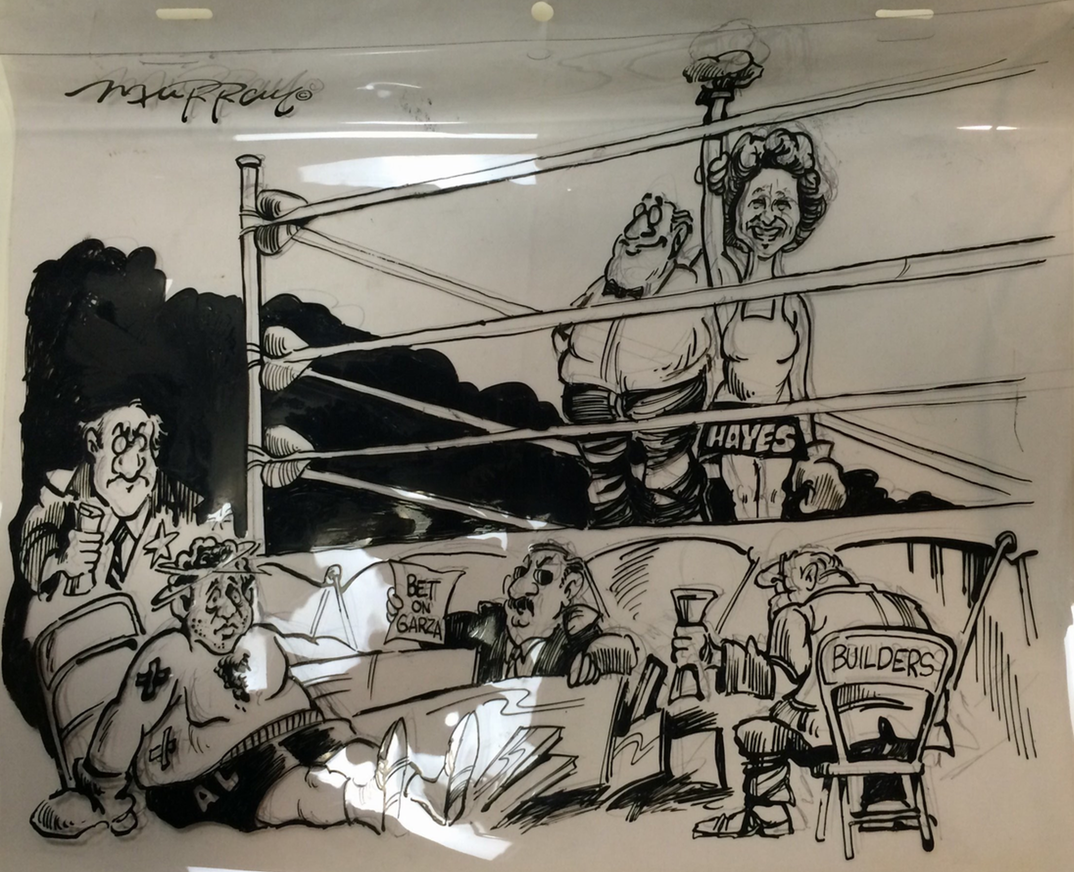 MURRAY ©
HAYES
BET
ON
GARZA
BUILDERS
AL